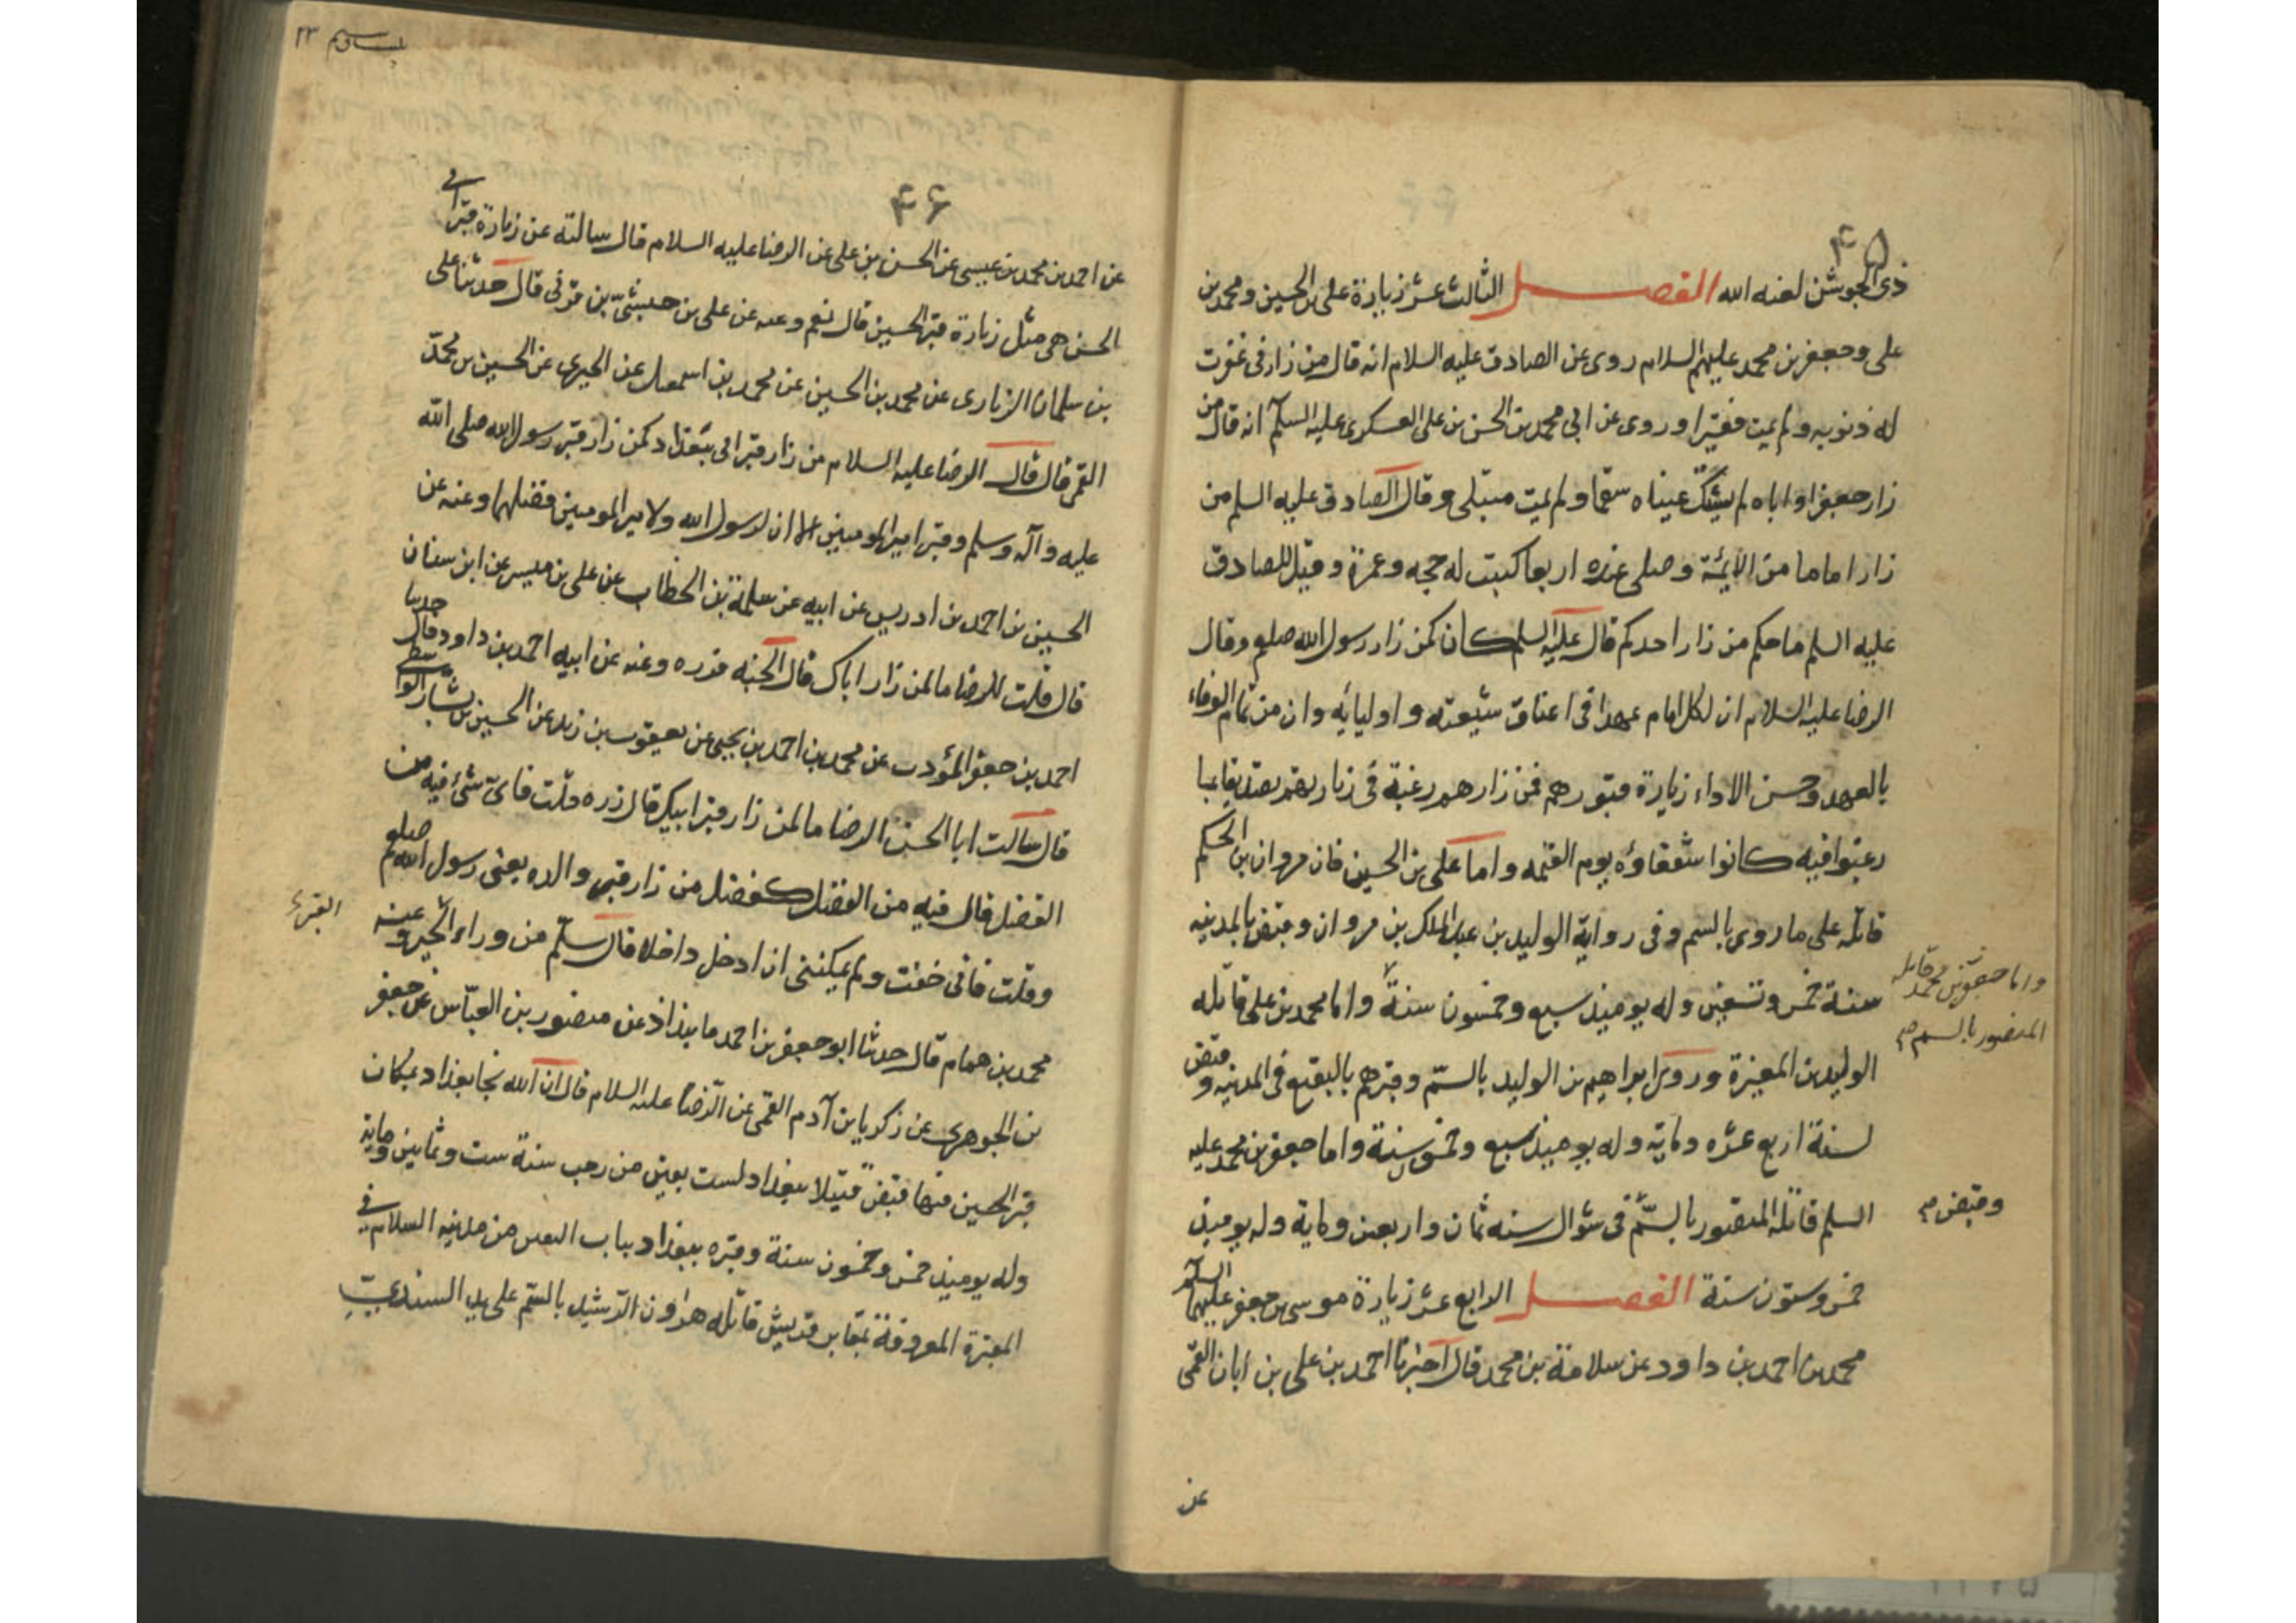 ۴۵
ذى الجوشن لعنه الله الفصل الثالث عشر زيارة على بن الحسين ومحمد بن
على وجعفر بن محمد عليهم السلام روى عن الصادق عليه السلام انه قال من زارنى غفرت
له ذنوبه ولم يمت فقيرا وروى عن ابى محمد بن الحسن بن على العسكرى عليه السلام انه قال من
زار جعفرا او اباه لم يشتك عيناه سقما ولم يمت مبتلى وقال الصادق عليه السلم من
زار اماما من الائمة وصلى عنده اربعا كتبت له حجه وعمرة وقيل للصادق
عليه السلم ما حكم من زار احدكم قال عليه السلم كان كمن زار رسول الله صلعم وقال
الرضا عليه السلام ان لكل امام عهدا فى اعناق شيعته واوليائه وان من تمام الوفاء
بالعهد وحسن الاداء زيارة قبورهم فمن زارهم رغبة فى زيارتهم تصديقا بما
رغبوا فيه كانوا شفعاؤه يوم القيمه واما على بن الحسين فان مروان بن الحكم
قاتله على ما روى بالسم وفى رواية الوليد بن عبد الملك بن مروان وقبض بالمدينه
سنة خمس وتسعين وله يوميذ سبع وخمسون سنة واما محمد بن على قاتله
واما جعفر بن محمد قاتله
المنصور بالسم م
الوليد بن المغيرة وروى ابراهيم بن الوليد بالسم وقبرهم بالبقيع فى المدينه وقبض
لسنة اربع عشره ومايه وله يوميذ سبع وخمسون سنة واما جعفر بن محمد عليه
السلم قاتله المنصور بالسم فى شوال سنه ثمان واربعين وماية وله يوميذ
وقبض م
خمس وستون سنة الفصل الرابع عشر زيارة موسى بن جعفر عليهما السلم
محمد بن احمد بن داود عن سلامة بن محمد قال اخبرنا احمد بن على بن ابان القمى
عن
۴۶
عن احمد بن محمد بن عيسى عن الحسن بن على عن الرضا عليه السلام قال سالته عن زيارة قبر ابى
الحسن هى مثل زيارة قبر الحسين قال نعم وعنه عن على بن حبشى بن قونى قال حدثنا على
بن سلمان الزرارى عن محمد بن الحسين عن محمد بن اسمعيل عن الخيبرى عن الحسين بن محمد
القمى قال قال الرضا عليه السلام من زار قبر ابى ببغداد كمن زار قبر رسول الله صلى الله
عليه وآله وسلم وقبر امير المومنين الا ان لرسول الله ولامير المومنين فضلهما وعنه عن
الحسين بن احمد بن ادريس عن ابيه عن سلمة بن الخطاب عن على بن ميسر عن ابن سنان
قال قلت للرضا ما لمن زار اباك قال الجنه فزره وعنه عن ابيه احمد بن داود قال حدثنا
احمد بن جعفر المؤدب عن محمد بن احمد بن يحيى عن يعقوب بن زيد عن الحسين بن بشار الواسطى
قال سالت ابا الحسن الرضا ما لمن زار قبر ابيك قال زره قلت فاى شئ فيه من
الفضل قال فيه من الفضل كفضل من زار قبر والده يعنى رسول الله صلعم
القبر
وقلت فانى خفت ولم يمكننى ان ادخل داخلا قال سلم من وراء الجسر وعنه
محمد بن همام قال حدثنا ابو جعفر بن احمد مابنداذ عن منصور بن العباس عن جعفر
بن الجوهرى عن زكريا بن آدم القمى عن الرضا عليه السلام قال ان الله نجا بغداد بمكان
قبر الحسين فيها قبض قتيلا ببغداد لست بقين من رجب سنة ست وثمانين ومايه
وله يوميذ خمس وخمسون سنة وقبره ببغداد بباب التين من مدينة السلام فى
المقبرة المعروفة بمقابر قريش قاتله هارون الرشيد بالسم على يد السندى بن